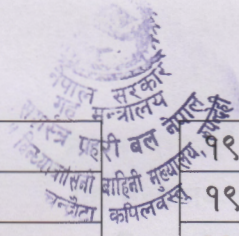 नेपाल सरकार
गृह मन्त्रालय
सशस्त्र प्रहरी बल नेपाल
विन्ध्यवासिनी बाहिनी मुख्यालय, रुपन्देही
चन्द्रौटा कपिलवस्तु
१९
१९